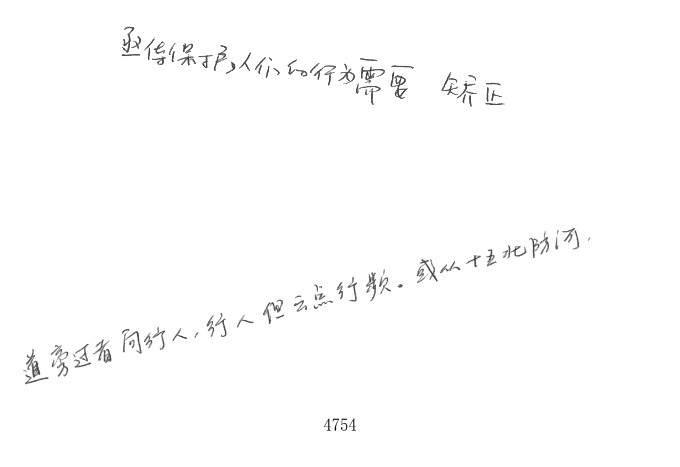 亟待保护,人们的行为需要 矫正
道旁过者问行人,行人但云点行频。或从十五北防河,
4754